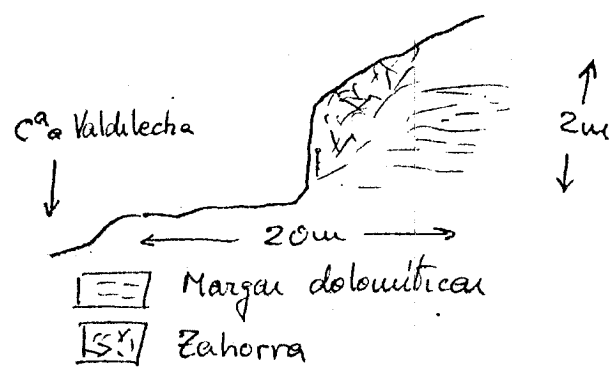 Cª a Valdilecha
2m
20m
Margas dolomíticas
Zahorra